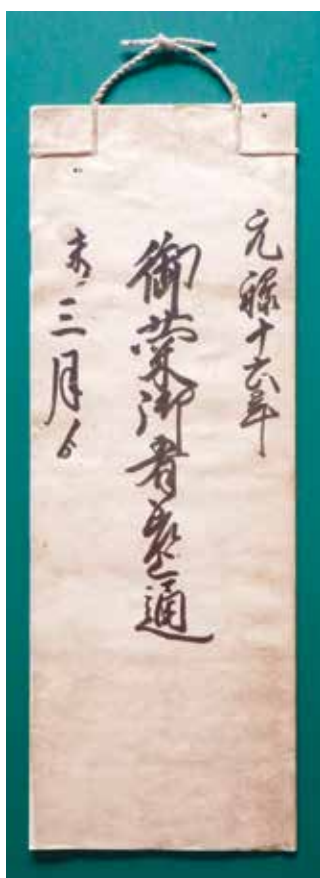 元禄十六年
御菜御肴通
未三月ゟ